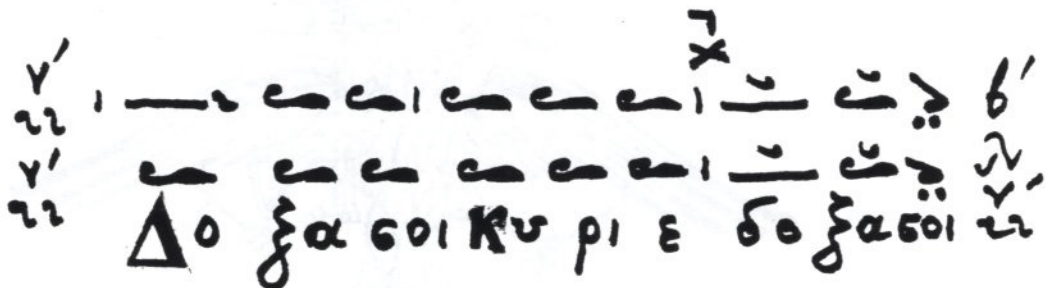 Δο ξα σοι Κυ ρι ε δο ξα σοι